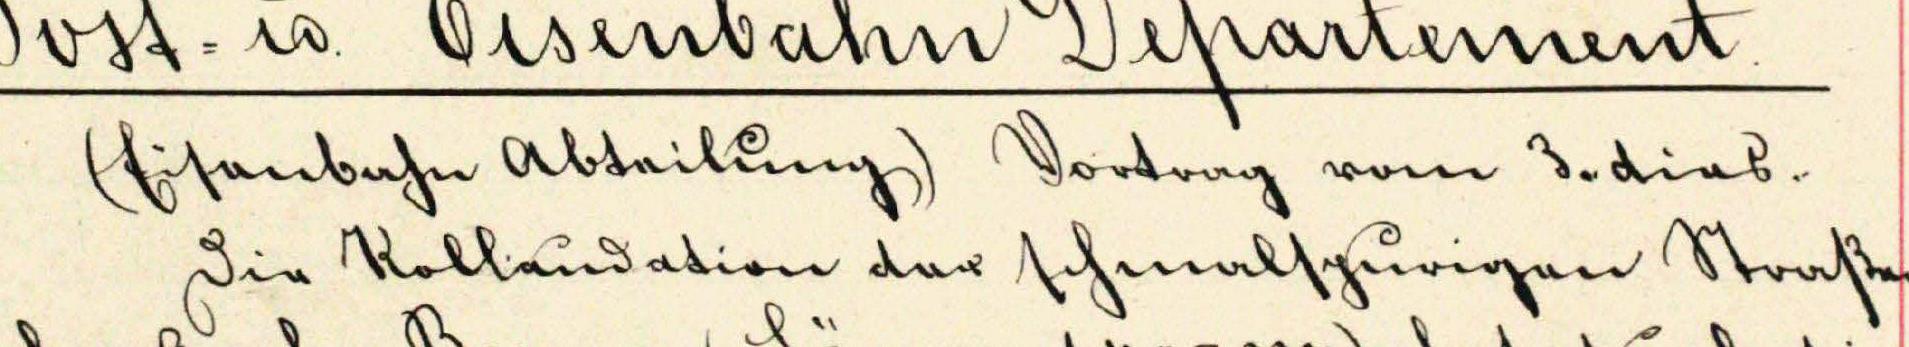 Post- u. Eisenbahn Departement.
(Eisenbahn Abteilung) Vortrag vom 3. dies.
Die Kollaudation der schmalspurigen Straßen